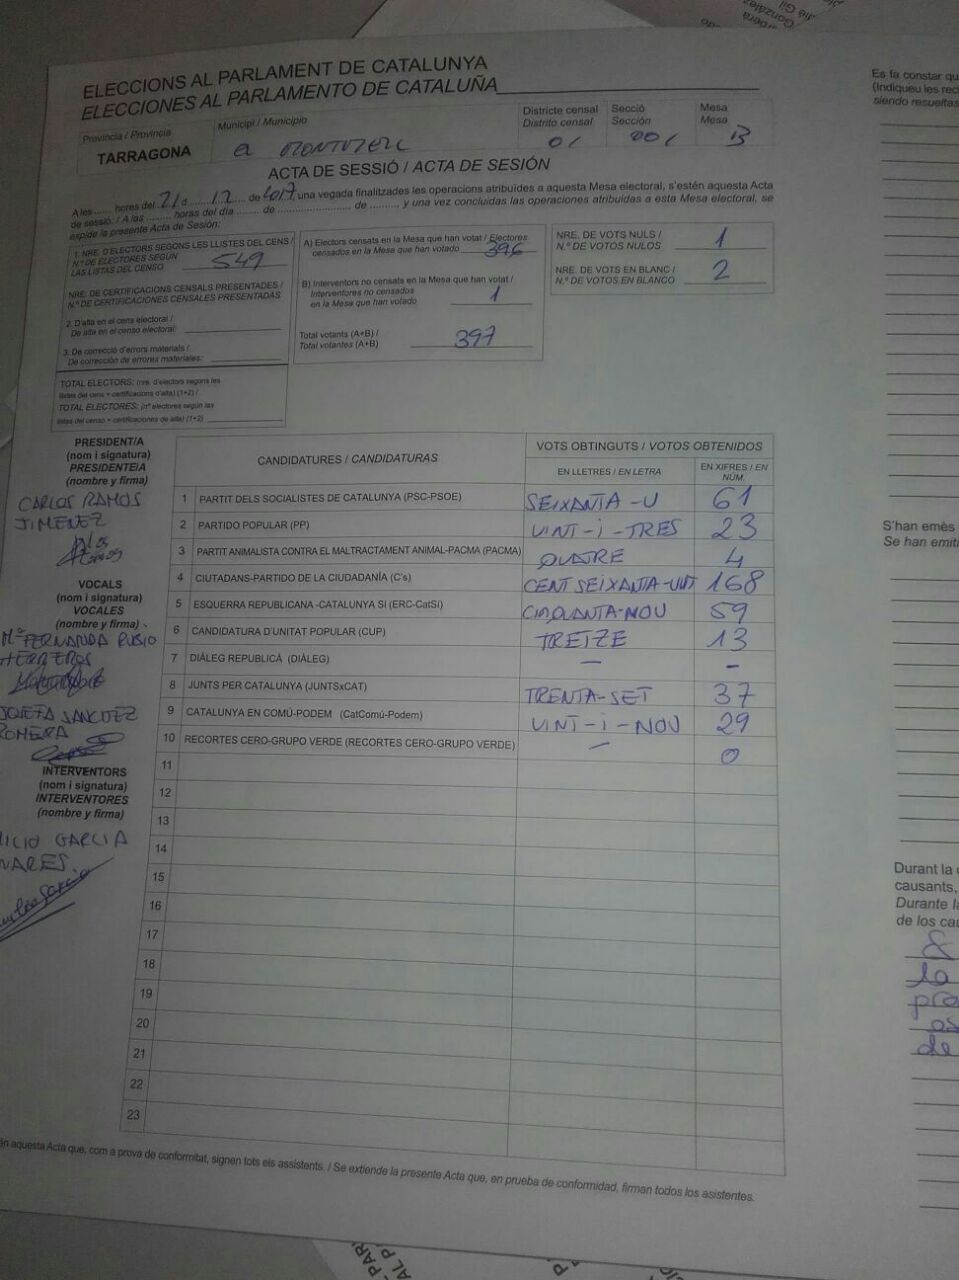 ELECCIONS AL PARLAMENT DE CATALUNYA
ELECCIONES AL PARLAMENTO DE CATALUÑA
Província / Provincia
TARRAGONA
Municipi / Municipio
EL MONTMELL
Districte censal
Distrito censal
01
Secció
Sección
001
Mesa
Mesa
B
ACTA DE SESSIÓ / ACTA DE SESIÓN
A les ...... hores del 21 d ... 12 ... de 2017, una vegada finalitzades les operacions atribuïdes a aquesta Mesa electoral, s'estén aquesta Acta
de sessió: / A las ......... horas del día ....... de ........................ de ......... y una vez concluidas las operaciones atribuidas a esta Mesa electoral, se
expide la presente Acta de Sesión:
1. NRE. D'ELECTORS SEGONS LES LLISTES DEL CENS /
N.º DE ELECTORES SEGÚN
LAS LISTAS DEL CENSO
549
NRE. DE CERTIFICACIONS CENSALS PRESENTADES /
N.º DE CERTIFICACIONES CENSALES PRESENTADAS
2. D'alta en el cens electoral /
De alta en el censo electoral:
3. De correcció d'errors materials /
De corrección de errores materiales:
TOTAL ELECTORS: (nre. d'electors segons les
llistes del cens + certificacions d'alta) (1+2) /
TOTAL ELECTORES: (nº electores según las
listas del censo + certificaciones de alta) (1+2)
A) Electors censats en la Mesa que han votat / Electores
censados en la Mesa que han votado
396
B) Interventors no censats en la Mesa que han votat /
Interventores no censados
en la Mesa que han votado
1
Total votants (A+B) /
Total votantes (A+B)
397
NRE. DE VOTS NULS /
N.º DE VOTOS NULOS
1
NRE. DE VOTS EN BLANC /
N.º DE VOTOS EN BLANCO
2
PRESIDENT/A
(nom i signatura)
PRESIDENTE/A
(nombre y firma)
CARLOS RAMOS
JIMENEZ
VOCALS
(nom i signatura)
VOCALES
(nombre y firma)
Mª FERNANDA RUBIO
HERREROS
JOSEFA SANCHEZ
ROMERA
INTERVENTORS
(nom i signatura)
INTERVENTORES
(nombre y firma)
GARCIA
CANDIDATURES / CANDIDATURAS
VOTS OBTINGUTS / VOTOS OBTENIDOS
EN LLETRES / EN LETRA
EN XIFRES / EN
NÚM.
1 PARTIT DELS SOCIALISTES DE CATALUNYA (PSC-PSOE) SEIXANTA-U 61
2 PARTIDO POPULAR (PP) VINT-I-TRES 23
3 PARTIT ANIMALISTA CONTRA EL MALTRACTAMENT ANIMAL-PACMA (PACMA) QUATRE 4
4 CIUTADANS-PARTIDO DE LA CIUDADANÍA (C's) CENT SEIXANTA-VUIT 168
5 ESQUERRA REPUBLICANA -CATALUNYA SI (ERC-CatSí) CINQUANTA-NOU 59
6 CANDIDATURA D'UNITAT POPULAR (CUP) TRETZE 13
7 DIÀLEG REPUBLICÀ (DIÀLEG) — -
8 JUNTS PER CATALUNYA (JUNTSxCAT) TRENTA-SET 37
9 CATALUNYA EN COMÚ-PODEM (CatComú-Podem) VINT-I-NOU 29
10 RECORTES CERO-GRUPO VERDE (RECORTES CERO-GRUPO VERDE) — 0
11
12
13
14
15
16
17
18
19
20
21
22
23
aquesta Acta que, com a prova de conformitat, signen tots els assistents. / Se extiende la presente Acta que, en prueba de conformidad, firman todos los asistentes.
Es fa constar
(Indiqueu les
siendo resueltas
S'han emès
Se han
Durant la
causants,
Durante
de los
la
de